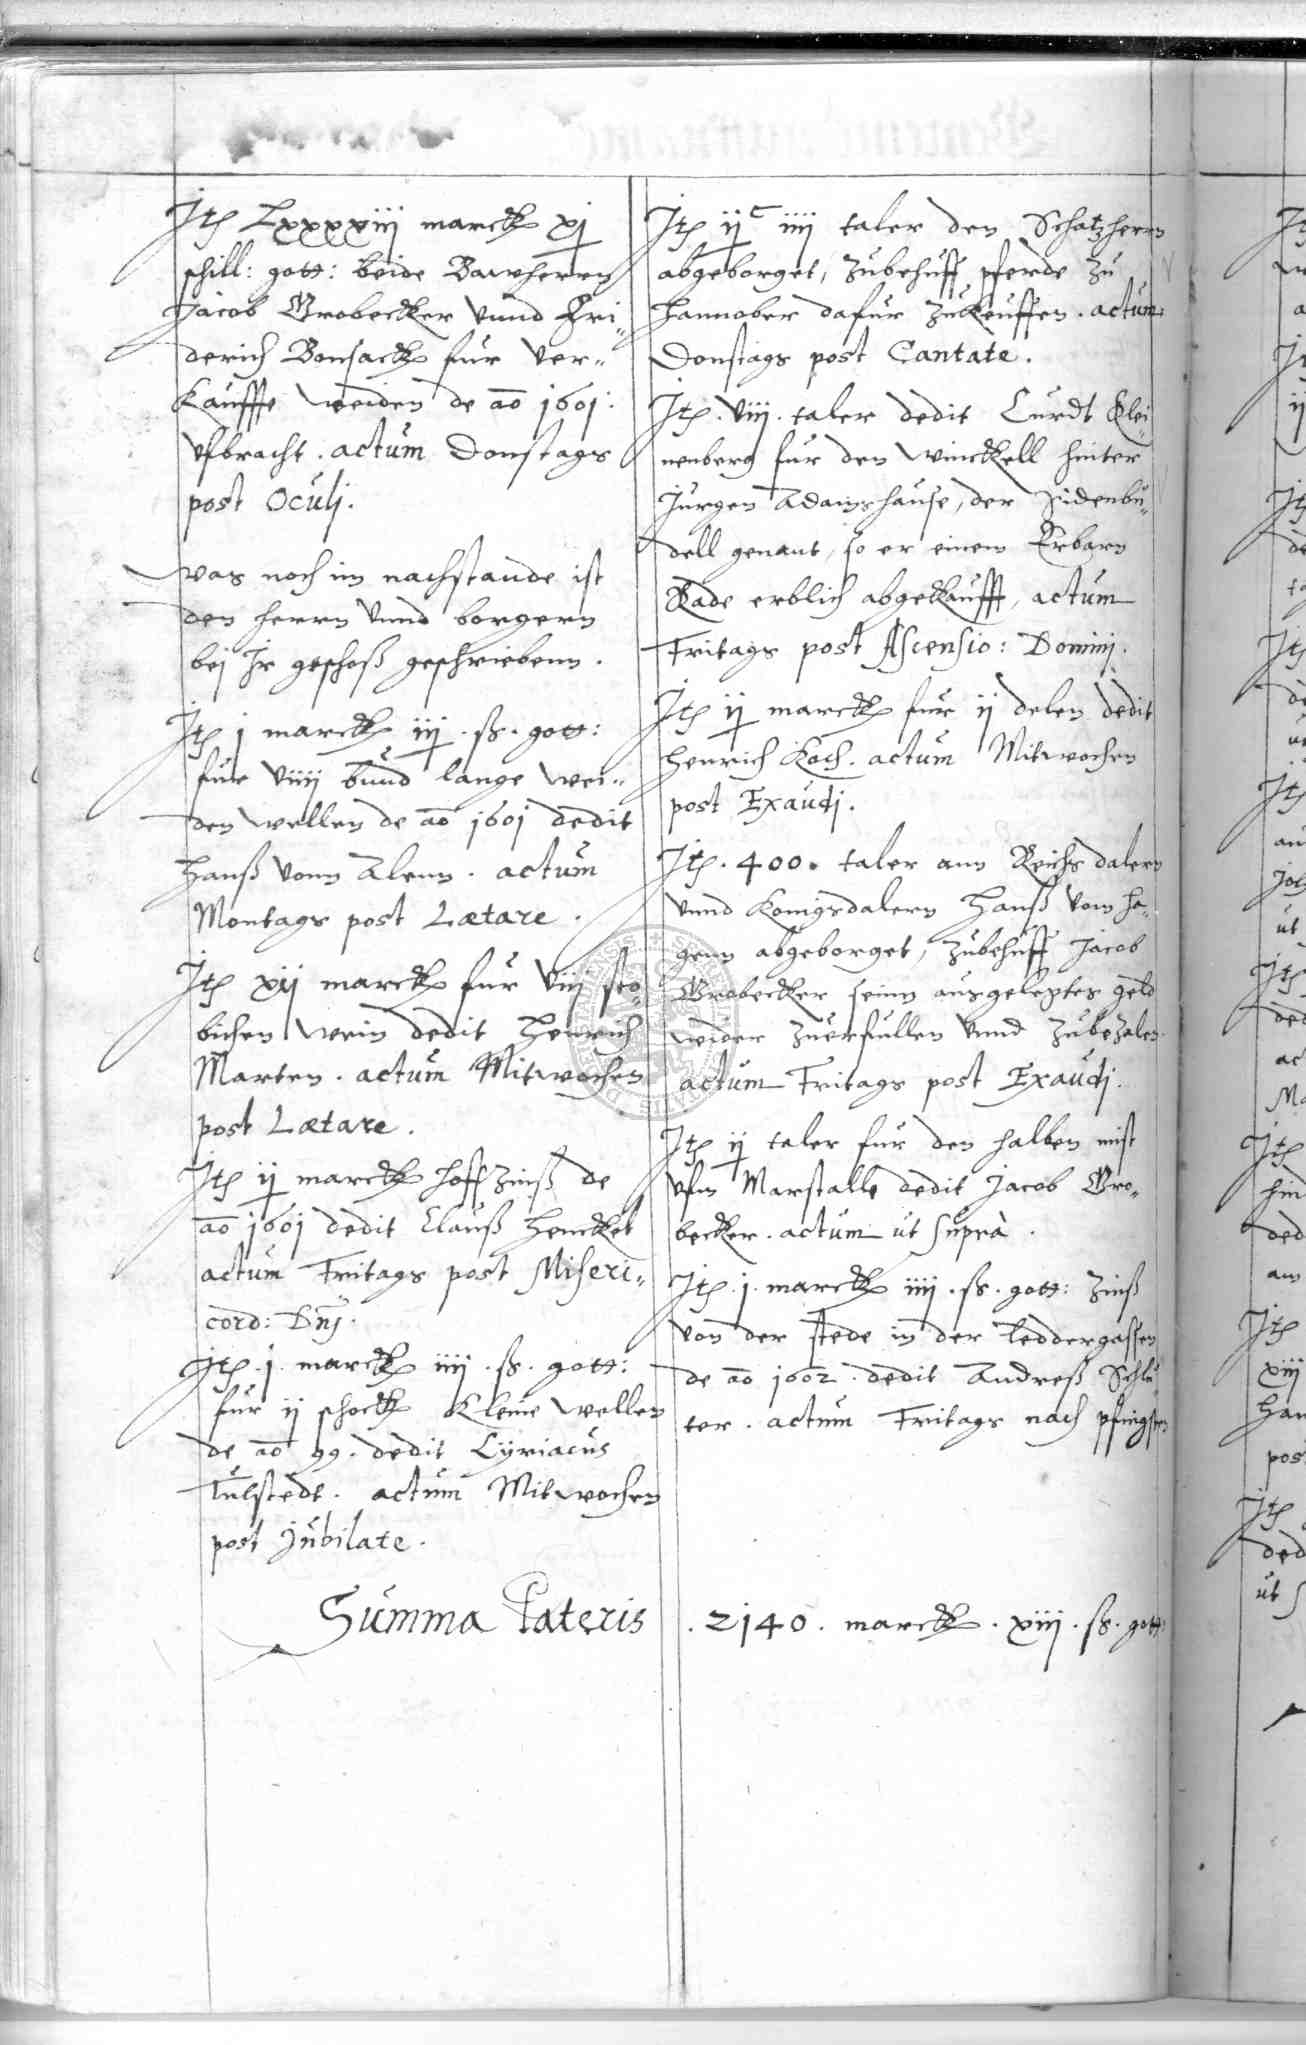 Itē Lxxxxiij marckꝭ xj
schill: gott: beide Bawherrn
Jacob Grobecker vnnd Fri„
derich Bonsackꝭ fur ver„
kaufffte weiden de aō 1601.
vfbracht. actum Donstags
post Oculj.
was noch im nachstande ist
den herrn vnnd borgern
bei Jr geschoß geschriebenn.
Itē j marckꝭ iij. ß. gott:
fur viiij bund lange wei„
den wellen de aō 1601 dedit
Hanß vonn Alenn. actum
Montags post Lætare.
Itē xij marckꝭ fur viij sto„
bichen wein dedit Henrich
Marten. actum Mitwochen
post Lætare.
Itē ij marckꝭ hoffzinß de
aō 1601 dedit Clauß Henckel
actum Fritags post Miseri„
cord: Dnj.
Itē. j. marckꝭ iiij. ß. gott:
fur ij schockꝭ kleine wellen
de aō 99. dedit Ciriacus
Tulstedt. actum Mitwochen
post Jubilate.
Itē ijᶜ iiij taler den Schatzherrn
abgeborget, zubehuff pferde zu
Hannober dafur zukeuffen. actum
Donstags post Cantate.
Itē. viij. taler dedit Curdt Klei„
nenberg fur den winckell hinter
Jurgen Adamshause, der Judenbu„
dell genant, so er einem Erbarn
Rade erblich abgekaufft, actum
Fritags post Ascensio: Dominj.
Itē ij marckꝭ fur ij delen dedit
Henrich Koch. actum Mitwochen
post Exaudj.
Itē. 400. taler ann Reichs dalern
vnnd Konigsdalern Hanß vom ha„
genn abgeborget, zubehuff Jacob
Grobecker seinn ausgelegtes geld
wider zuerfullen vnnd zubezalen.
actum Fritags post Exaudj.
Itē ij taler fur den halben mist
vfm Marstalle dedit Jacob Gro„
becker. actum ut suprà.
Itē. j. marckꝭ iiij. ß. gott: zinß
von der stede in der leddergassen
de aō 1602. dedit Andreß Schlu„
ter. actum Fritags nach pfingsten
Summa Lateris . 2140. marckꝭ. xiij. ß. gott: